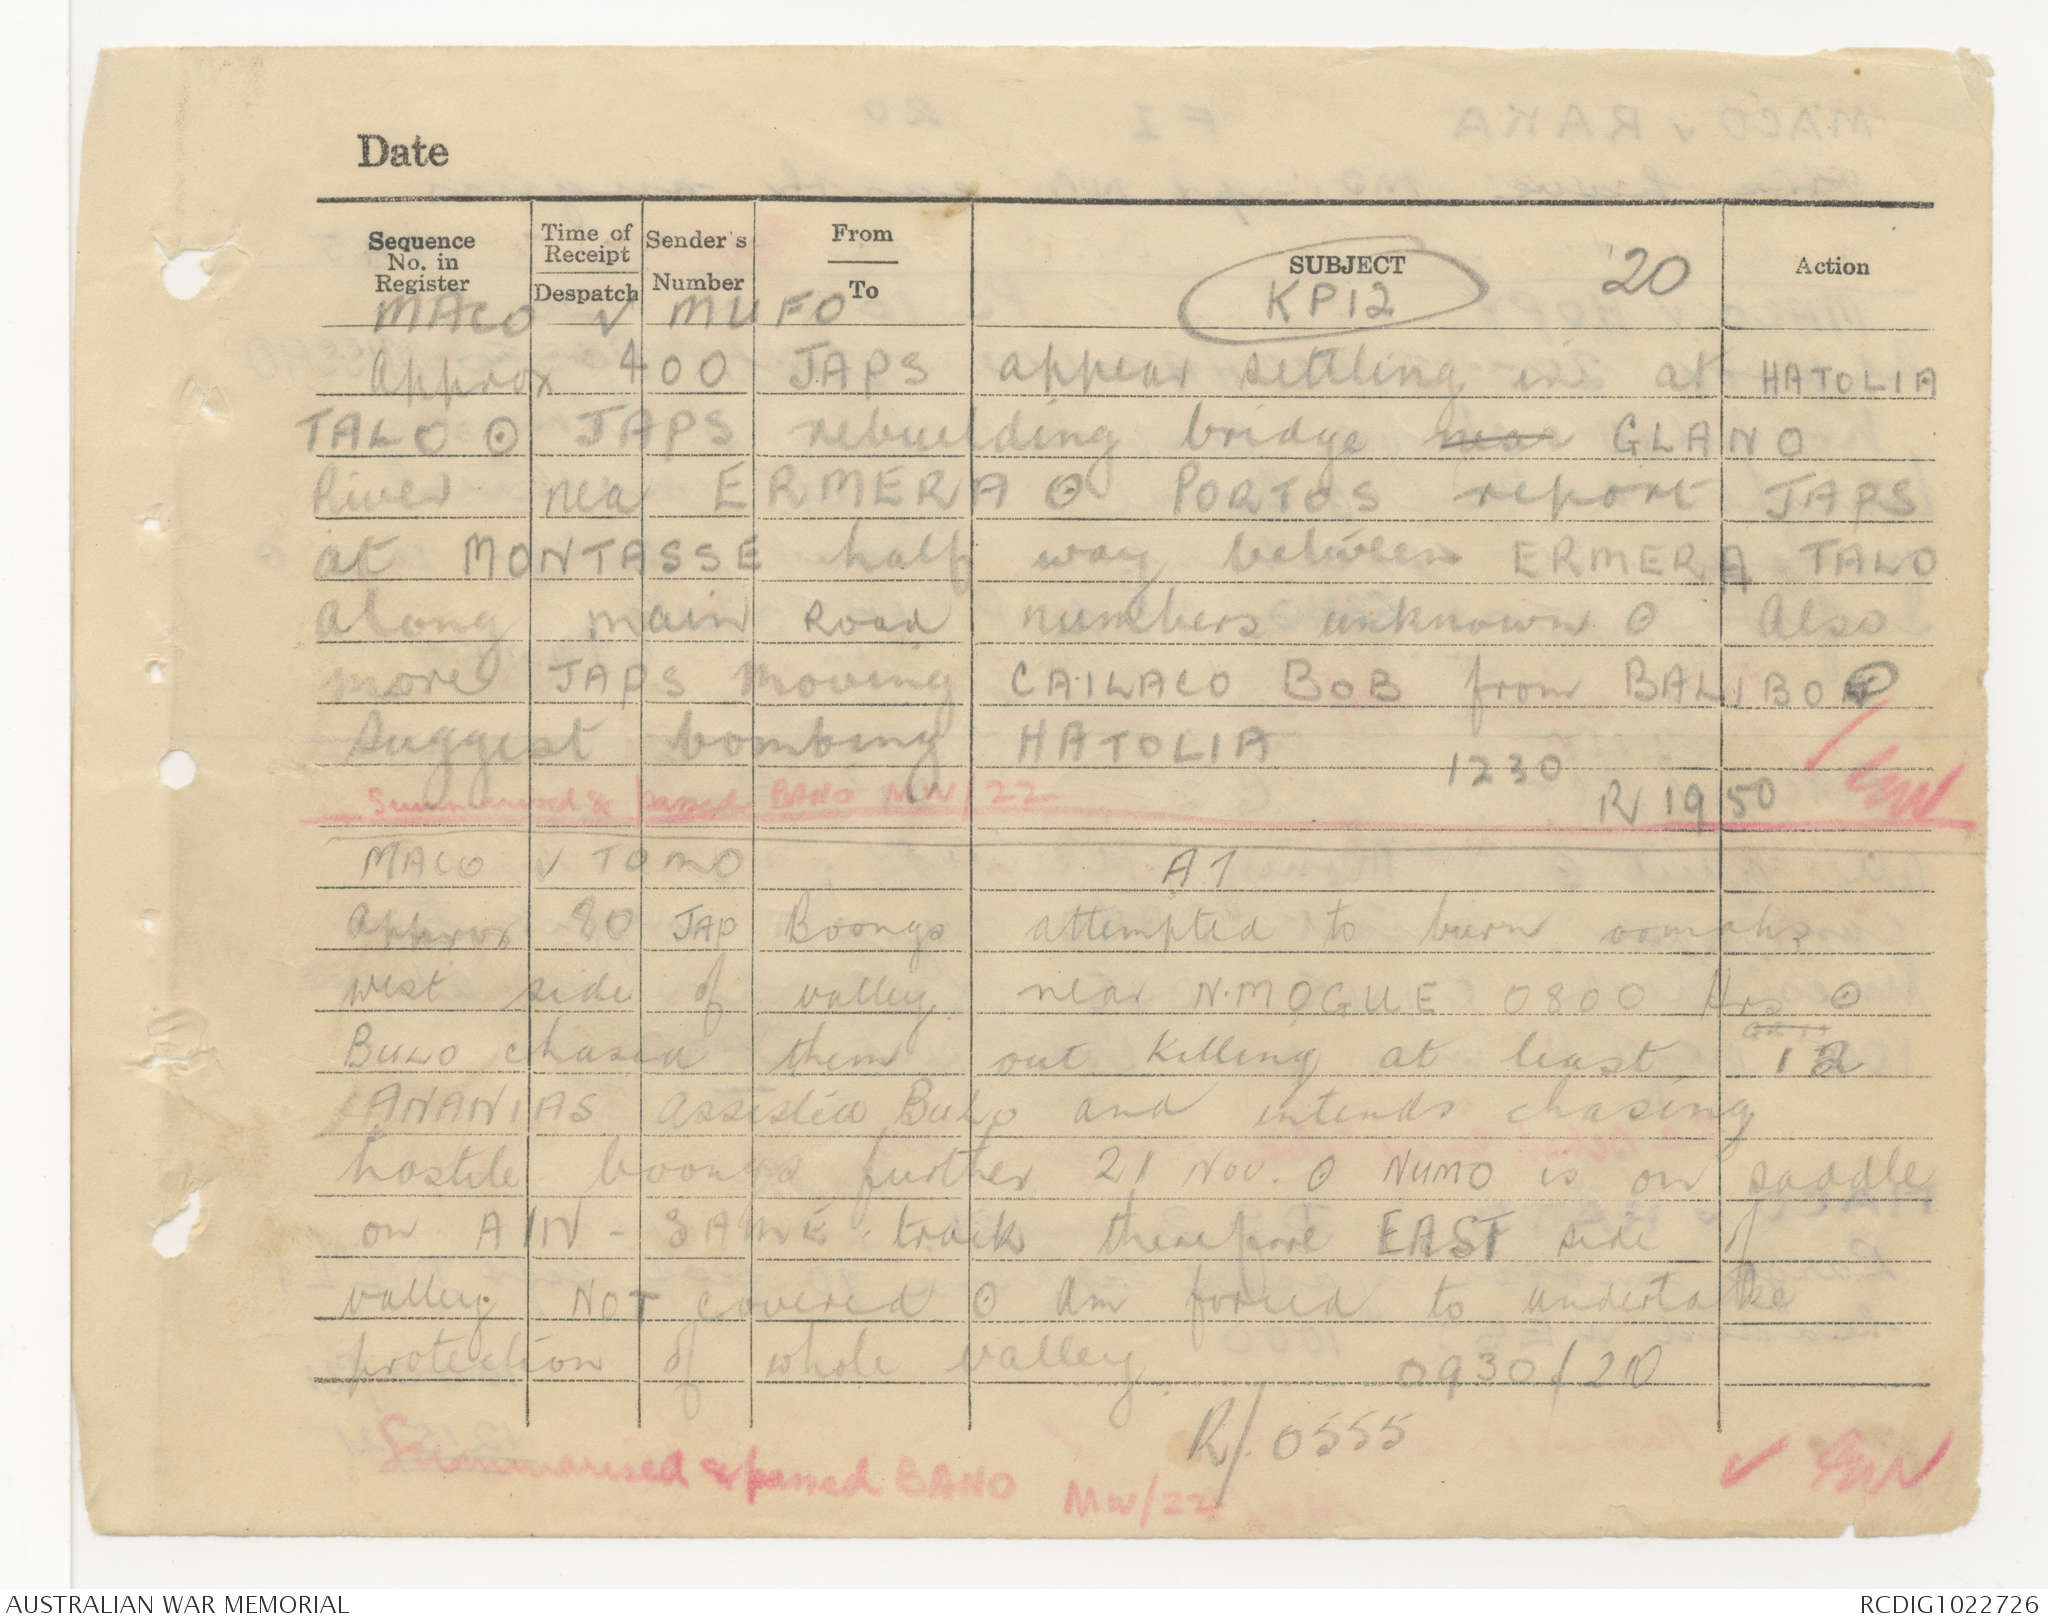 Date
Sequence No. in Register
Time of Receipt
Despatch
Sender's Number
From
To
SUBJECT
Action
MACO v MUFO KP12 20
Approx 400 JAPS appear settling in at HATOLIA
TALO ⊙ JAPS rebuilding bridge near GLANO
River near ERMERA ⊙ PORTOS report JAPS
at MONTASSE half way between ERMERA TALO
along main Road numbers unknown ⊙ Also
more JAPS moving CAILACO BOB from BALIBO ⊙
suggest bombing HATOLIA 1230
R 1950
Summarised & passed BANO MW/22
MACO v TOMO A7
Approx 80 JAP Boongs attempted to burn oomahs
west side of valley near N.MOGUE 0800 Hrs ⊙
BULO chased them out killing at least 12
ANANIAS assisted BULO and intends chasing
hostile boongs further 21 Nov. ⊙ NUMO is on saddle
on AIN - SAME track therefore EAST side of
valley NOT covered ⊙ Am forced to undertake
protection of whole valley. 0930/20
R/. 0555
Summarised & passed BANO MW/22
AUSTRALIAN WAR MEMORIAL
RCDIG1022726